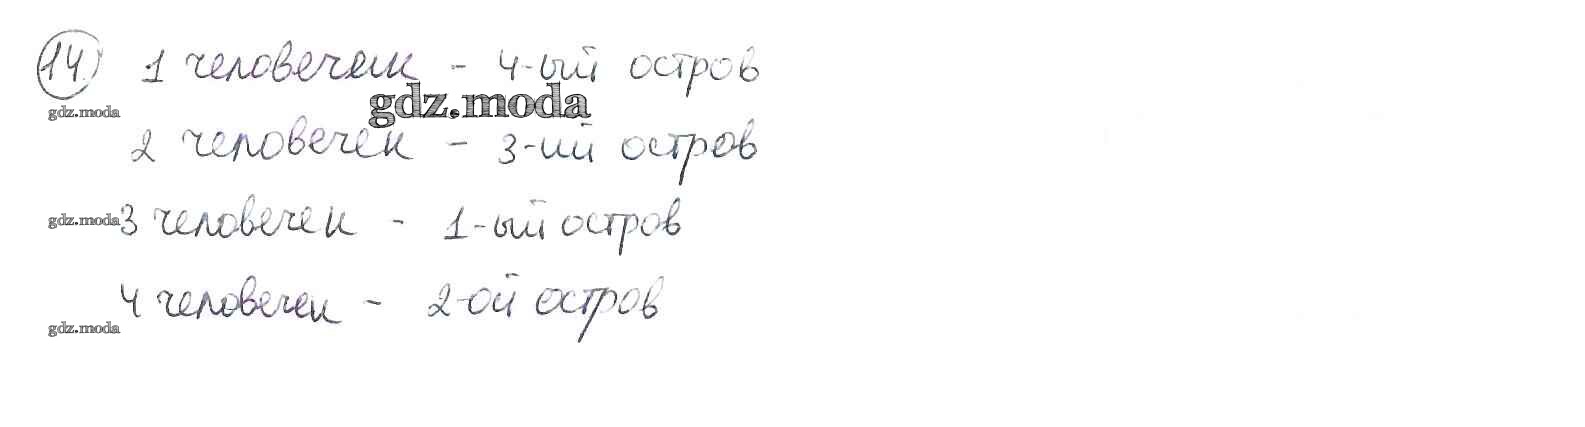 14. 1 человечек - 4-ый остров
gdz.moda
gdz.moda
2 человечек - 3-ий остров
gdz.moda 3 человечек - 1-ый остров
4 человечек - 2-ой остров
gdz.moda